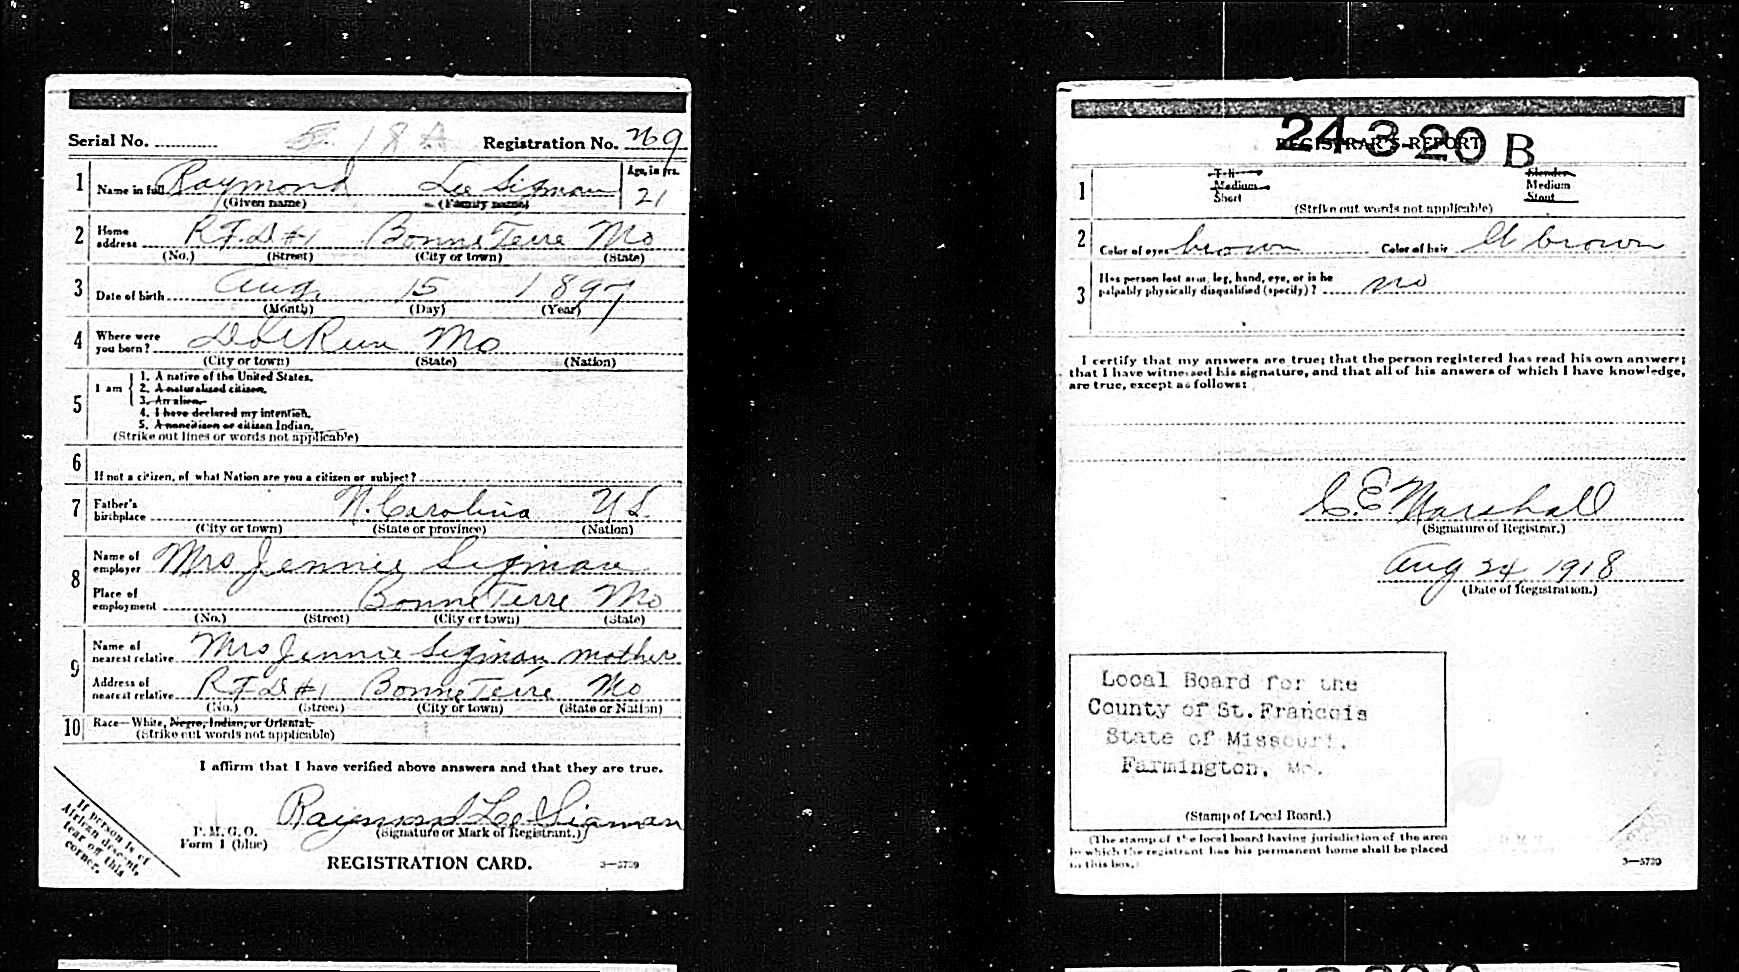 Serial No. 518 A Registration No. 269
1 Name in full Raymond Lee Sigman Age, in yrs. 21
(Given name) (Family name)
2 Home address R.F.D. #1 Bonne Terre Mo
(No.) (Street) (City or town) (State)
3 Date of birth Aug. 15 1897
(Month) (Day) (Year)
4 Where were you born? DoeRun Mo
(City or town) (State) (Nation)
5 I am
1. A native of the United States.
2. A naturalized citizen.
3. An alien.
4. I have declared my intention.
5. A noncitizen or citizen Indian.
(Strike out lines or words not applicable)
6 If not a citizen, of what Nation are you a citizen or subject?
7 Father's birthplace N. Carolina U S.
(City or town) (State or province) (Nation)
8 Name of employer Mrs Jennie Sigman
Place of employment Bonne Terre Mo
(No.) (Street) (City or town) (State)
9 Name of nearest relative Mrs Jennie Sigman mother
Address of nearest relative R F D #1 Bonne Terre Mo
(No.) (Street) (City or town) (State or Nation)
10 Race—White, Negro, Indian, or Oriental.
(Strike out words not applicable)
I affirm that I have verified above answers and that they are true.
Raymond Lee Sigman
(Signature or Mark of Registrant.)
P. M. G. O.
Form 1 (blue)
REGISTRATION CARD.
3—5739
If person is of
African descent,
tear off this
corner.
24-3-20 B
REGISTRAR'S REPORT
1 Tall Slender
Medium Medium
Short Stout
(Strike out words not applicable)
2 Color of eyes brown Color of hair lt brown
3 Has person lost arm, leg, hand, eye, or is he
palpably physically disqualified (specify)? no
I certify that my answers are true; that the person registered has read his own answers;
that I have witnessed his signature, and that all of his answers of which I have knowledge,
are true, except as follows:
E Marshall
(Signature of Registrar.)
Aug 24, 1918
(Date of Registration.)
Local Board for the
County of St. Francois
State of Missouri.
Farmington, Mo.
(Stamp of Local Board.)
(The stamp of the local board having jurisdiction of the area
in which the registrant has his permanent home shall be placed
in this box.)
3—5739